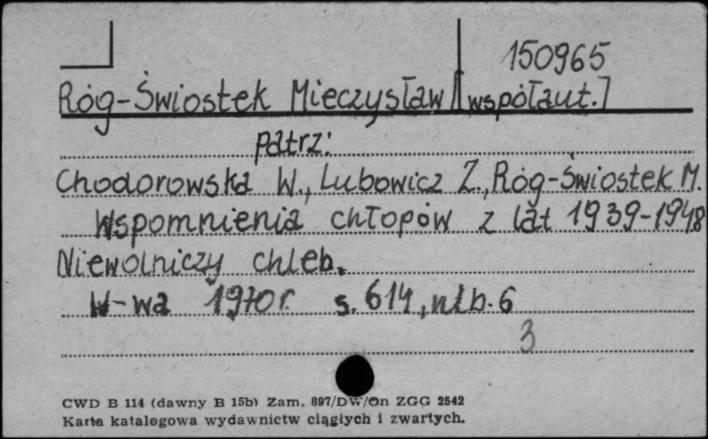 150965
Róg-Świostek Mieczysław [współaut.]
patrz:
Chodorowska W., Lubowicz Z., Róg-Świostek M.
Wspomnienia chłopów z lat 1939-1948
Niewolniczy chleb.
W-wa 1970 r. s. 614, nlb. 6
3
CWD B 114 (dawny B 15b) Zam. 897/DW/On ZGG 2542
Karta katalogowa wydawnictw ciągłych i zwartych.